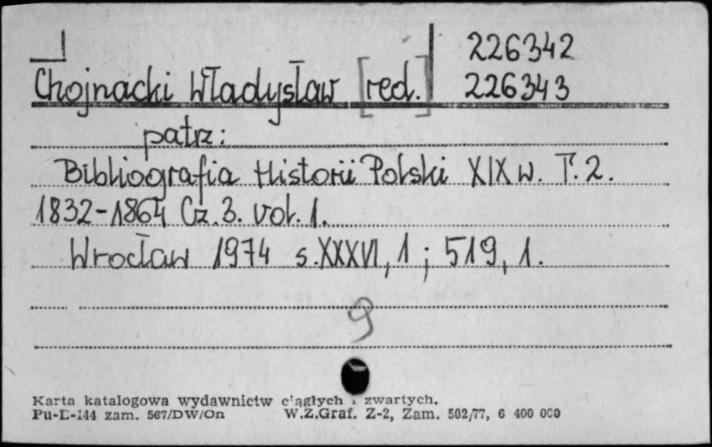 226342
Chojnacki Władysław [red.] 226343
patrz:
Bibliografia Historii Polski XIX w. T. 2.
1832-1864 Cz. 3. vol. 1.
Wrocław 1974 s. XXXVI, 1 ; 519, 1.
9
Karta katalogowa wydawnictw ciągłych i zwartych.
Pu-D-144 zam. 567/DW/On W.Z.Graf. Z-2, Zam. 502/77, 6 400 000